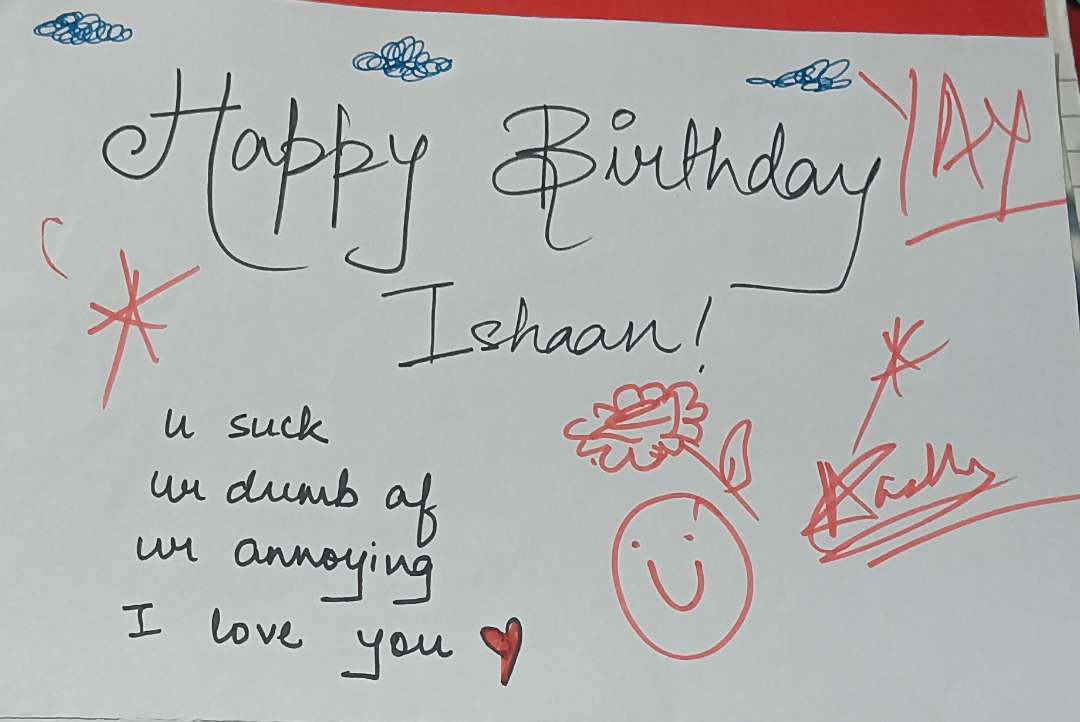 Happy Birthday
YAY
Ishaan!
u suck
ur dumb af
ur annoying
I love you